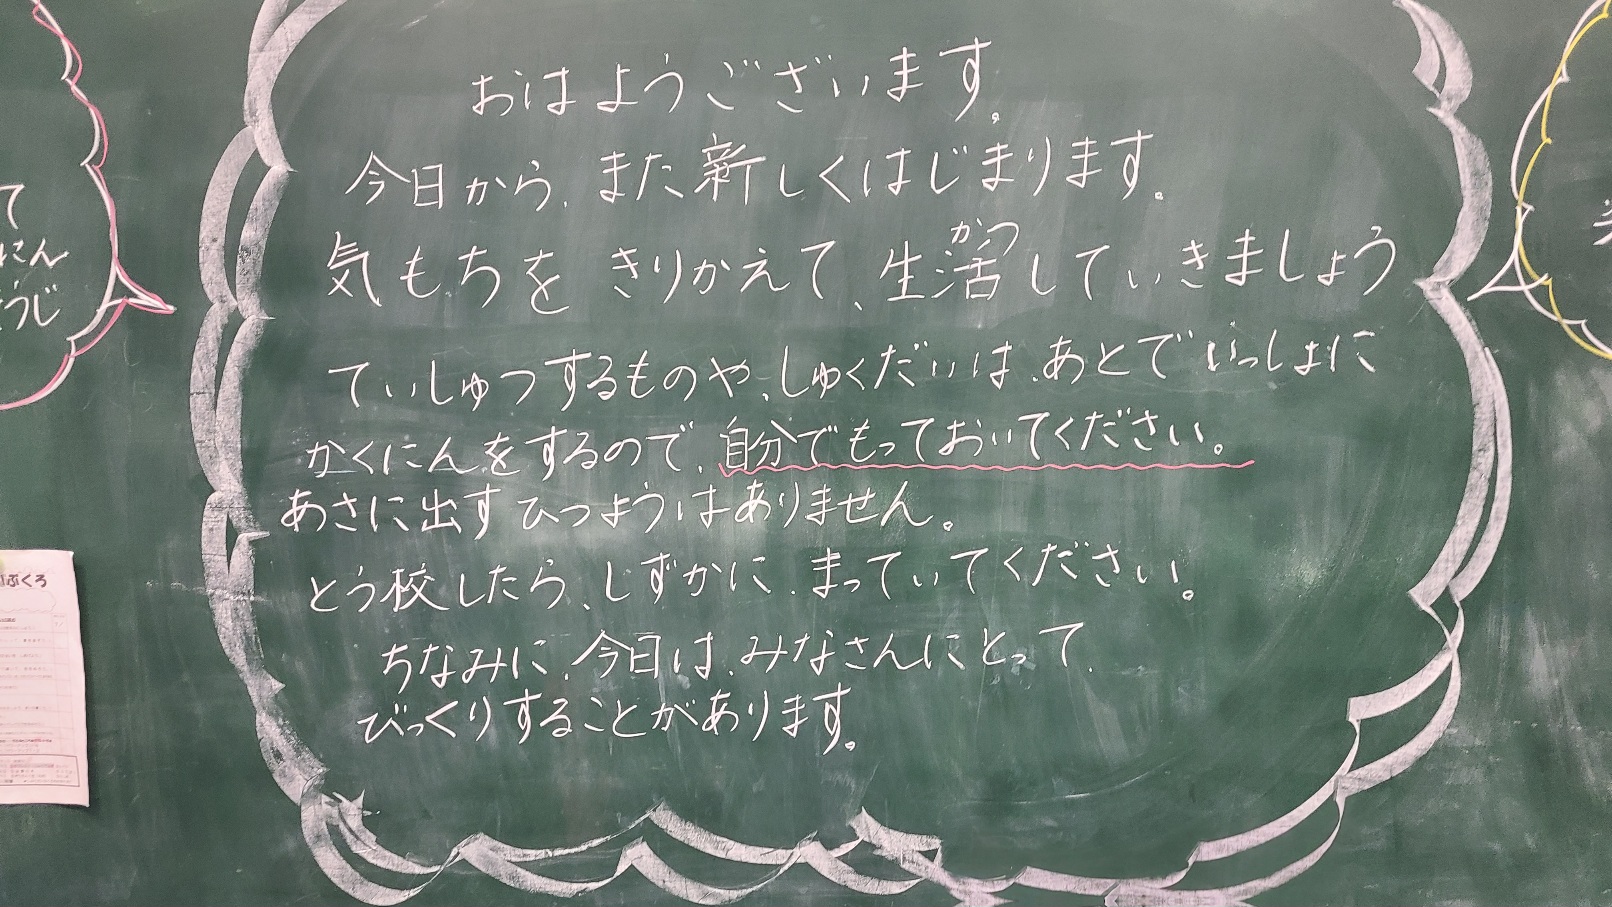 おはようございます。
今日から、また新しくはじまります。
気もちを きりかえて、生活していきましょう
かつ
ていしゅつするものや、しゅくだいは、あとでいっしょに
かくにんをするので、自分でもっておいてください。
あさに出すひつようはありません。
とう校したら、しずかに、まっていてください。
ちなみに、今日は、みなさんにとって、
びっくりすることがあります。
て
にん
うじ
ぶくろ